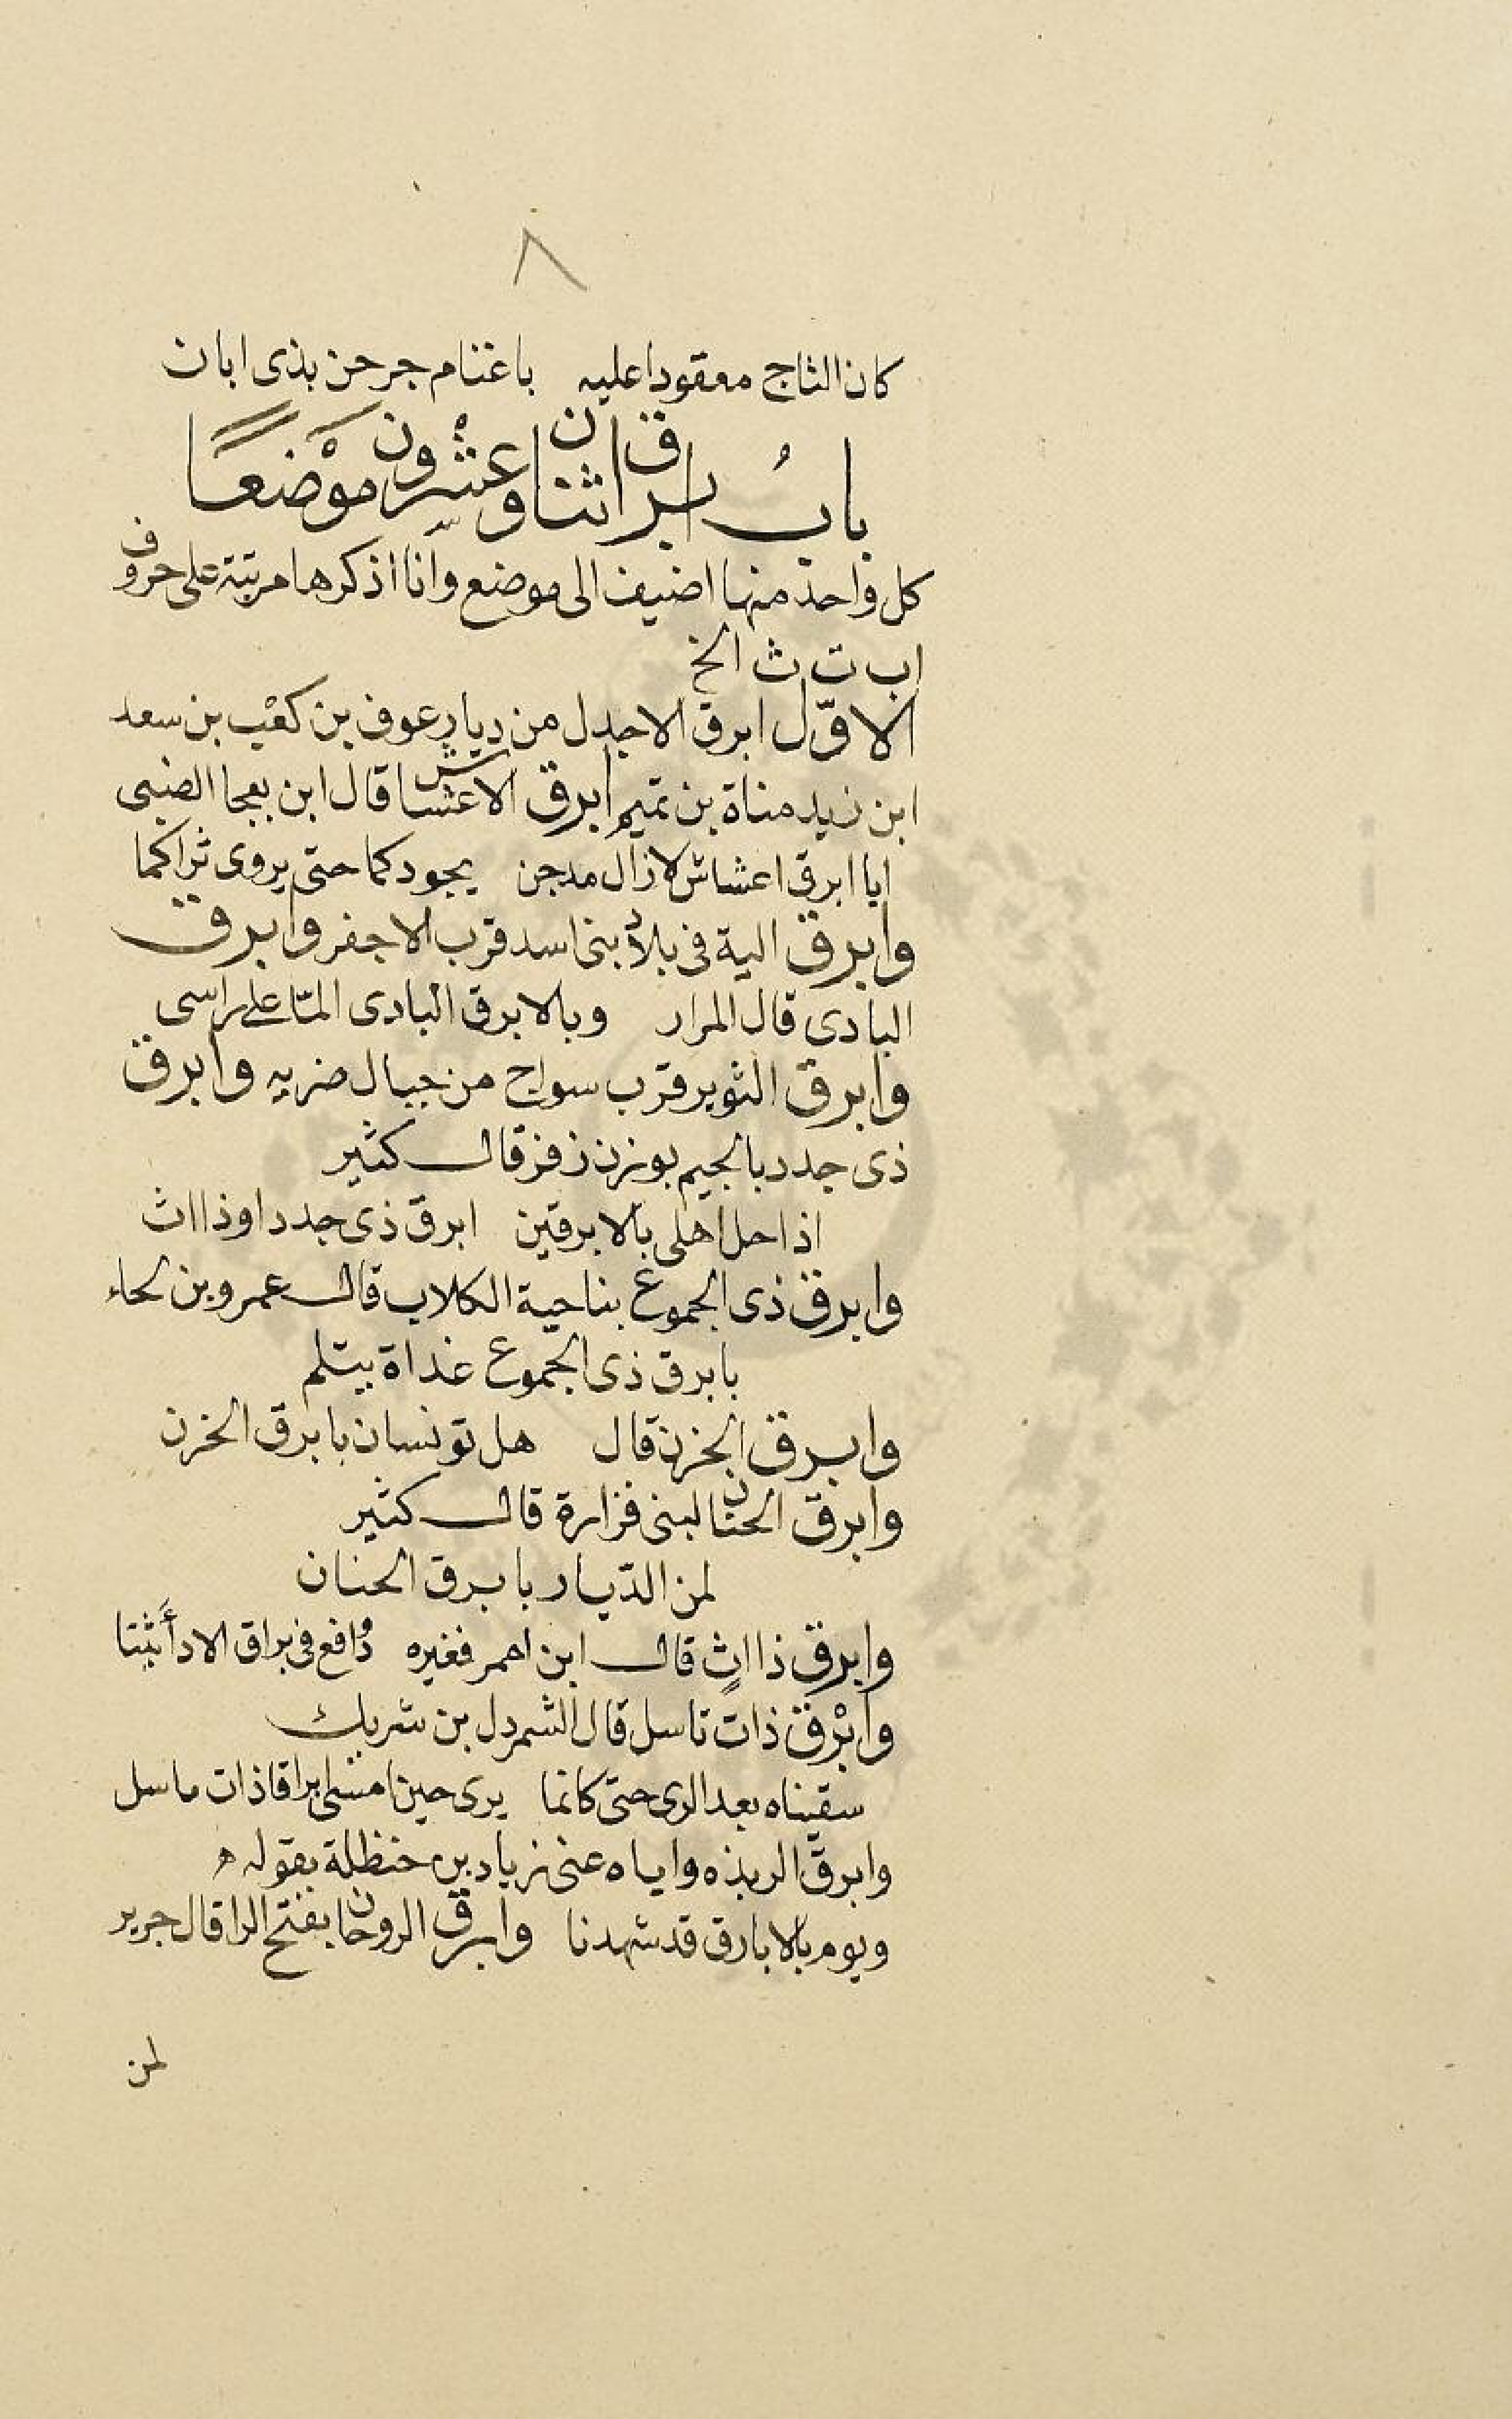 ٨
كان التاج معقودا عليه باغتنام جرحن بذى ابان
بابُ ابرق اثنان وعشرون موْضعًا
كل واحد منها اضيف الى موضع وانا اذكرها مرتبة على حروف
اب ت ث الخ
الاوّل ابرق الاجدل من ديار عوف بن كعْب بن سعد
ابن زيد مناة بن تميم ابرق الاعشاش قال ابن بعجا الضبى
ايا ابرقى اعشاش لازال مدجن يجودكما حتى يروى ثراكما
وابرق الية فى بلاد بنى اسد قرب الاجفر وابرق
البادى قال المرار وبالابرق البادى المّا على راسى
وابرق الثوير قرب سواج من جبال ضريه وابرق
ذى جدد بالجيم بوزن زفز قال كثير
اذا حل اهلى بالابرقين ابرق ذى جدد او ذا اث
وابرق ذى الجموع بناحية الكلاب قال عمرو بن لحاء
بابرق ذى الجموع غداة بيتلم
وابرق الخزن قال هل تونسان بابرق الخزن
وابرق الحنان لبنى فزارة قال كثير
لمن الدّيار بابرق الحنان
وابرق ذا اثٍ قال ابن احمر فغيره دُافع فى براق الادأَثبتا
وابْرق ذات تاسل قال الشمردل بن شريك
سقيناه بعد الرى حتى كانما يرى حين امسى ابراقا ذات ماسل
وابرق الربذه واياه عنى زياد بن حنظلة بقوله
ويوم بالابارق قد شهدنا وابرق الروحان بفتح الرا قال جرير
لمن